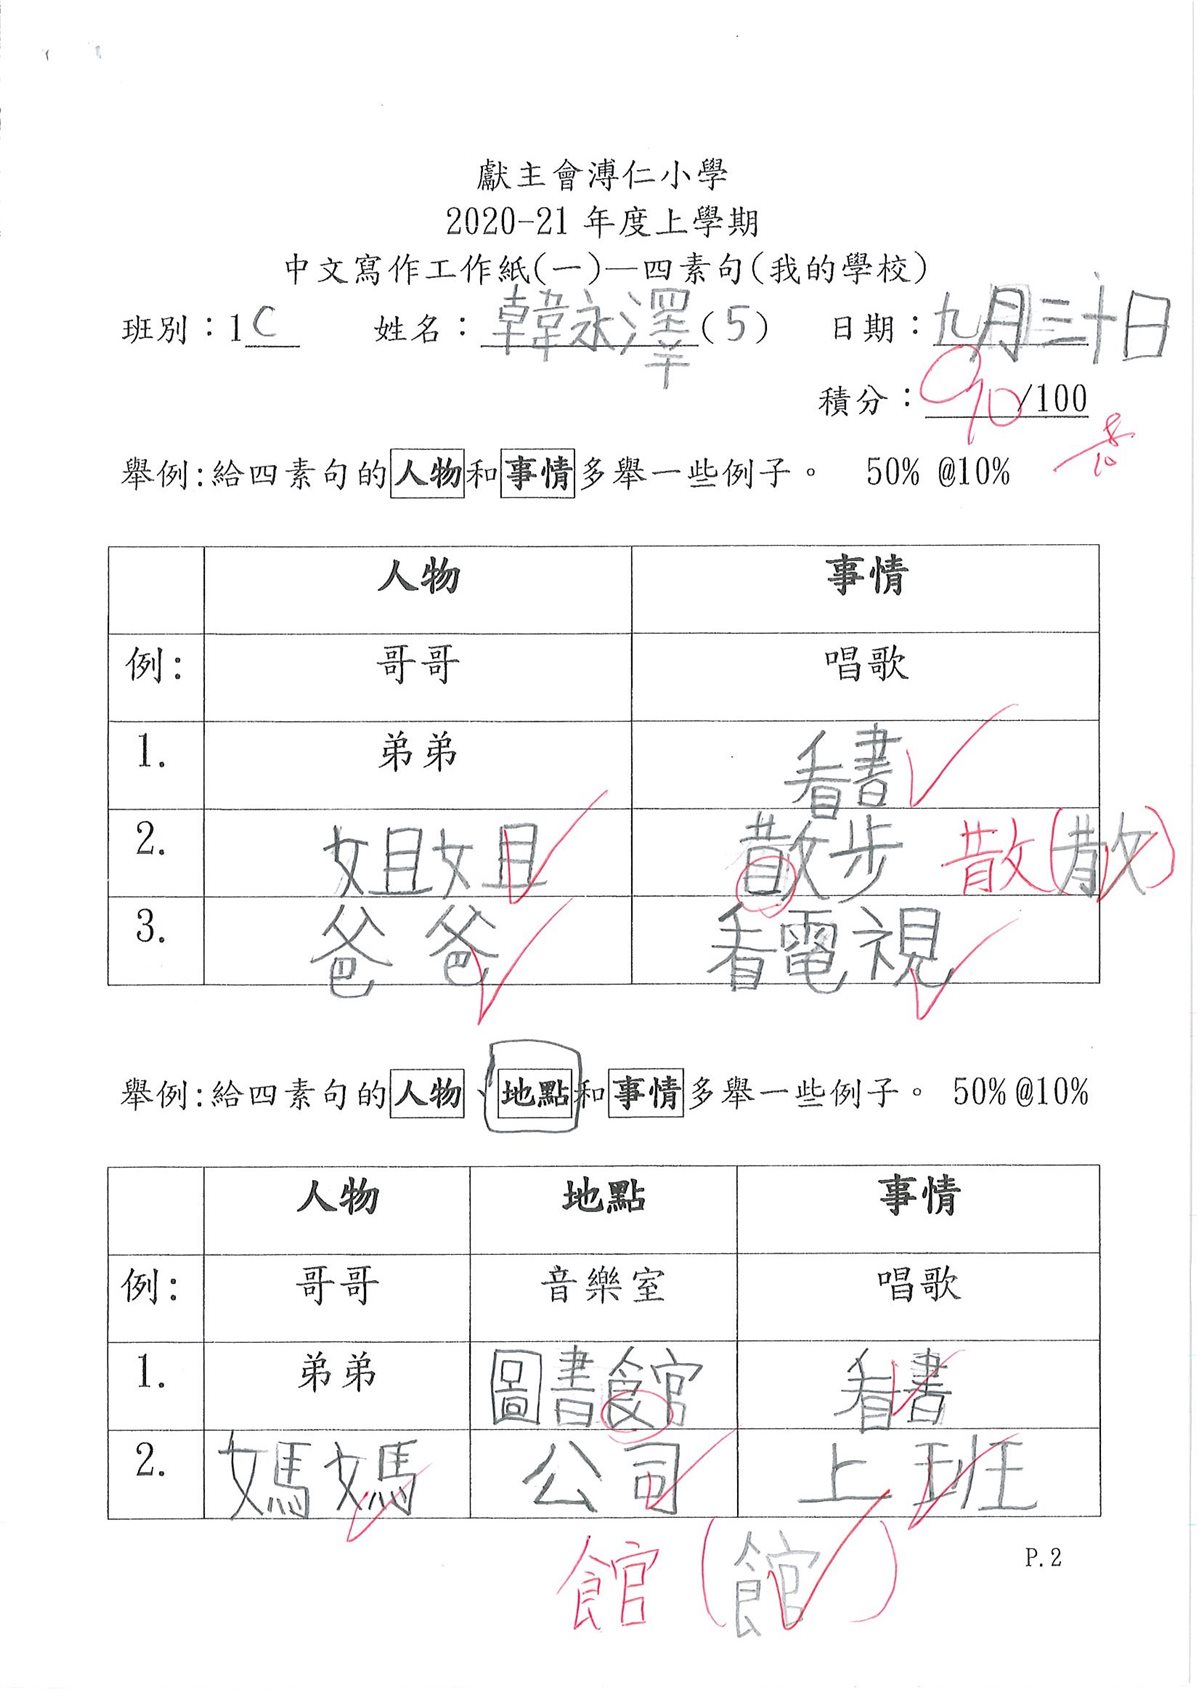 獻主會溥仁小學
2020-21 年度上學期
中文寫作工作紙(一)—四素句(我的學校)
班別：1C 姓名：韓永澤(5) 日期：九月三十日
積分：90/100
舉例:給四素句的人物和事情多舉一些例子。 50% @10%
人物 事情
例: 哥哥 唱歌
1. 弟弟 看書
2. 姐姐 散步 散(散)
3. 爸爸 看電視
舉例:給四素句的人物、地點和事情多舉一些例子。 50%@10%
人物 地點 事情
例: 哥哥 音樂室 唱歌
1. 弟弟 圖書館 看書
2. 媽媽 公司 上班
館(館)
P.2